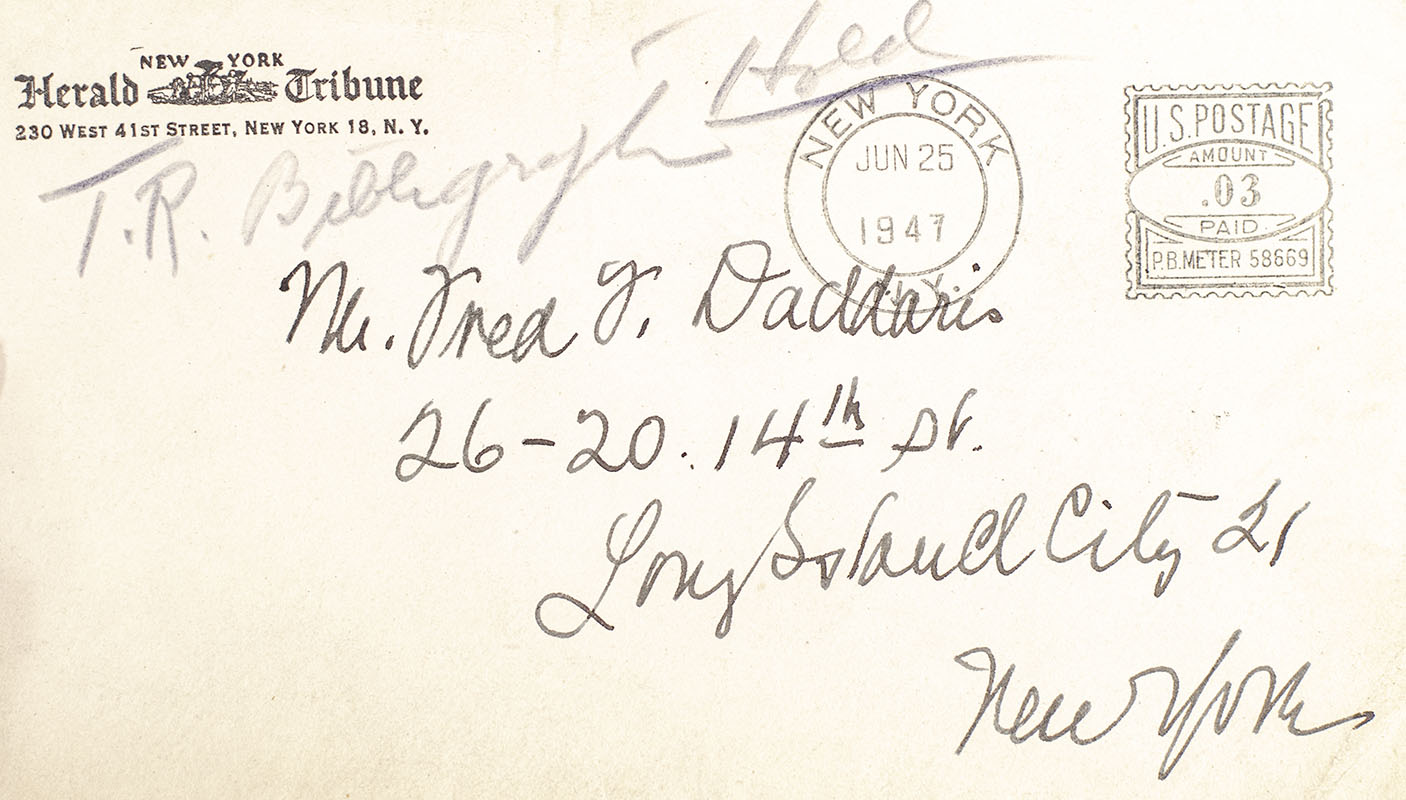 NEW YORK
Herald Tribune
230 WEST 41ST STREET, NEW YORK 18, N. Y.
Hold
T.R. Bibliography
NEW YORK
JUN 25
1947
N.Y.
U.S. POSTAGE
AMOUNT
.03
PAID
P.B. METER 58669
Mr. Fred Y. Daddaris
26-20. 14th St.
Long Island City 21
New York